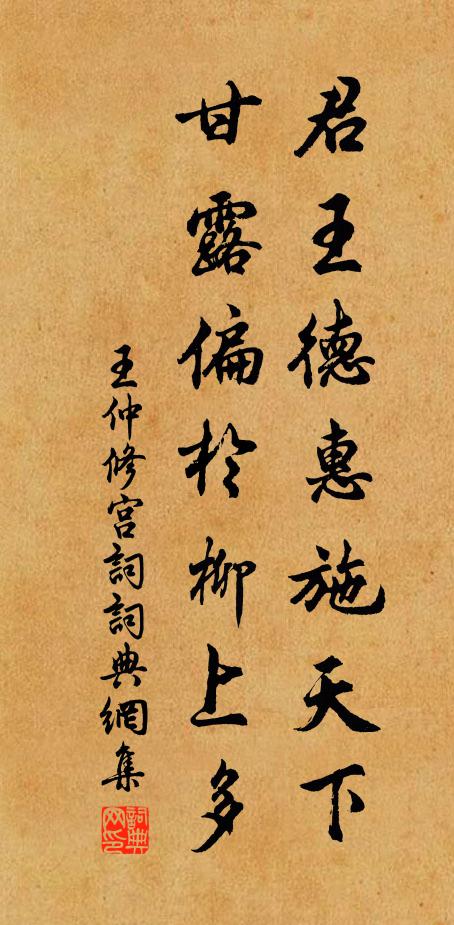 君王德惠施天下
甘露偏於柳上多
王仲修宮詞詞典網集
詞典网印